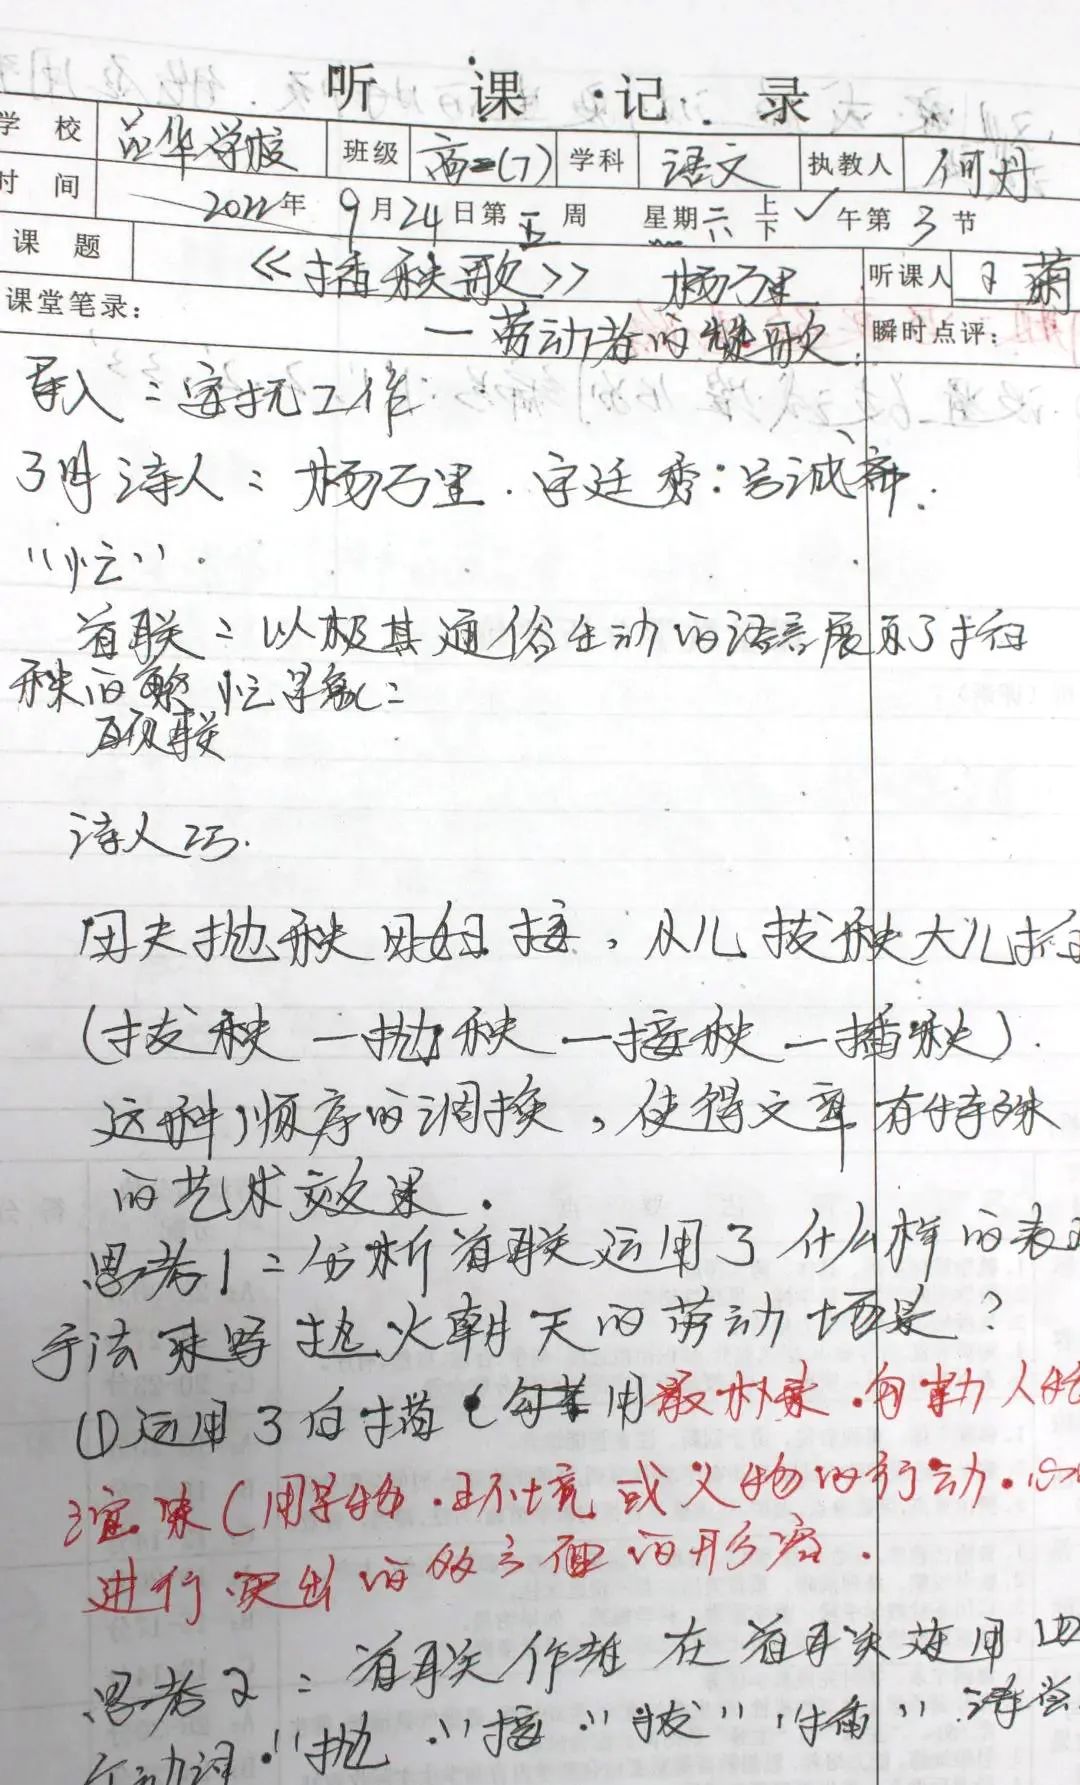 听 课 记 录
学 校 英华学校 班级 高二(7) 学科 语文 执教人 何丹
时 间 2022年9月24日第五周 星期六 上下✓午第3节
课 题 《插秧歌》 杨万里 听课人
课堂笔录： —劳动者的赞歌. 瞬时点评：
导入：字抚工作
了解诗人：杨万里.字廷秀：号诚斋.
“忙”.
首联：以极其通俗生动的语言展现了插
秧的繁忙景象：
颔联
诗人巧.
田夫抛秧田妇接，小儿拔秧大儿插
(拔秧—抛秧—接秧—插秧).
这种顺序的调换，使得文章有特殊
的艺术效果.
思考1：分析首联运用了什么样的表现
手法来写热火朝天的劳动场景？
①运用了白描 用最朴素.
渲染(用景物.环境或人物的行动.
进行突出的 的形容.
思考2：首联作者在首联连用四
个动词.“抛”.“接”.“拔”“插”